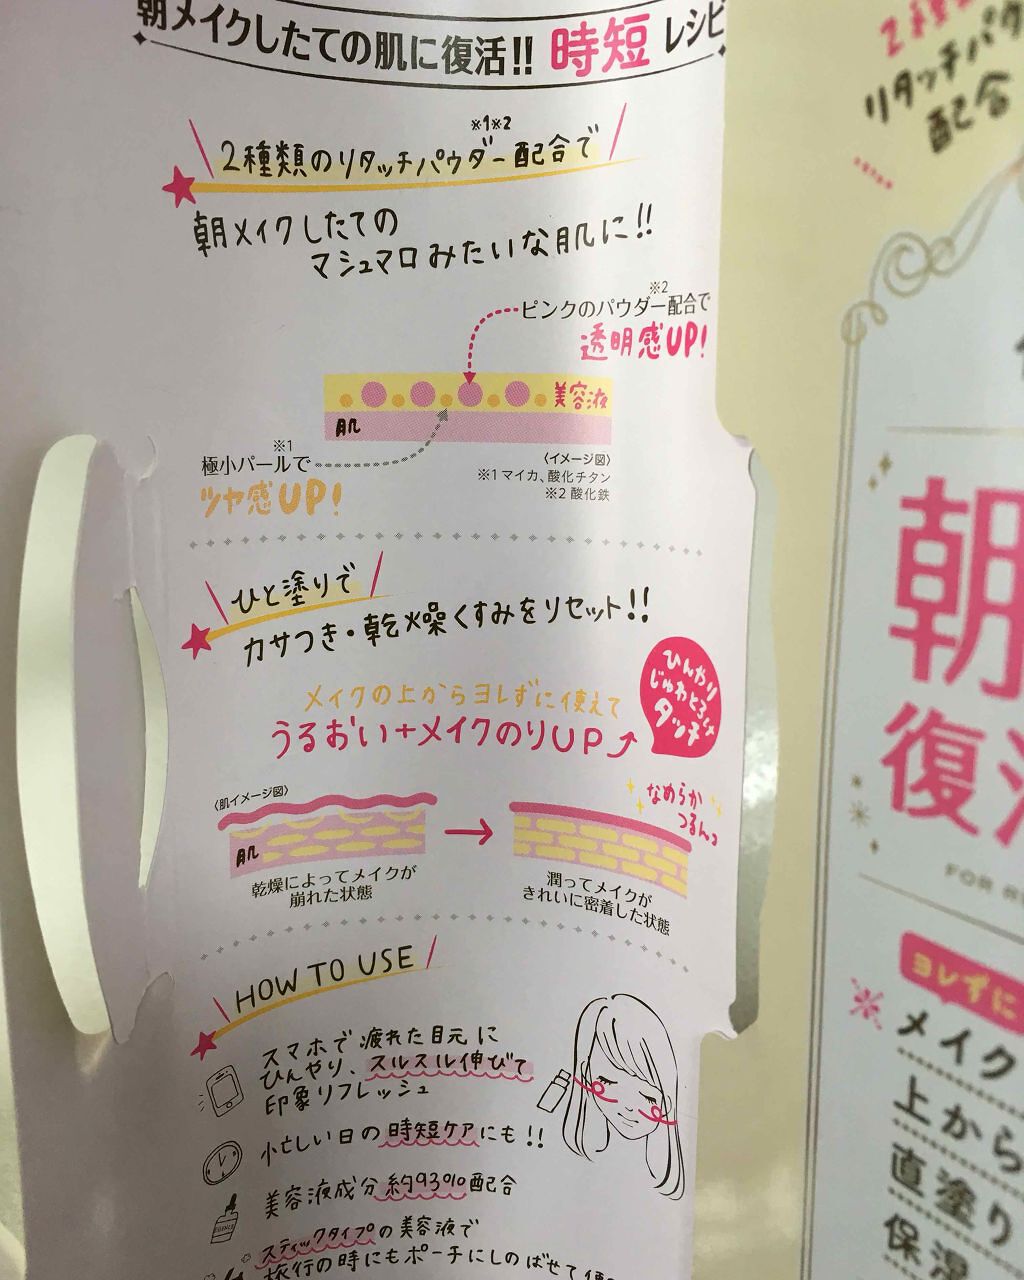 朝メイクしたての肌に復活!! 時短 レシピ
※1※2
2種類のリタッチパウダー配合で
朝メイクしたての
マシュマロみたいな肌に!!
※2
ピンクのパウダー配合で
透明感UP!
美容液
肌
※1
極小パールで
ツヤ感UP!
〈イメージ図〉
※1 マイカ、酸化チタン
※2 酸化鉄
ひと塗りで
カサつき・乾燥くすみをリセット!!
メイクの上からヨレずに使えて
うるおい+メイクのりUP
ひんやり
じゅわとろ
タッチ
〈肌イメージ図〉
肌
乾燥によってメイクが
崩れた状態
なめらか
つるんっ
潤ってメイクが
きれいに密着した状態
HOW TO USE
スマホで疲れた目元に
ひんやり、スルスル伸びて
印象リフレッシュ
忙しい日の時短ケアにも!!
美容液成分約93%配合
スティックタイプの美容液で
旅行の時にもポーチにしのばせて
リタッチパウ
配合
朝
復活
FOR
ヨレずに
メイク
上から
直塗り
保湿